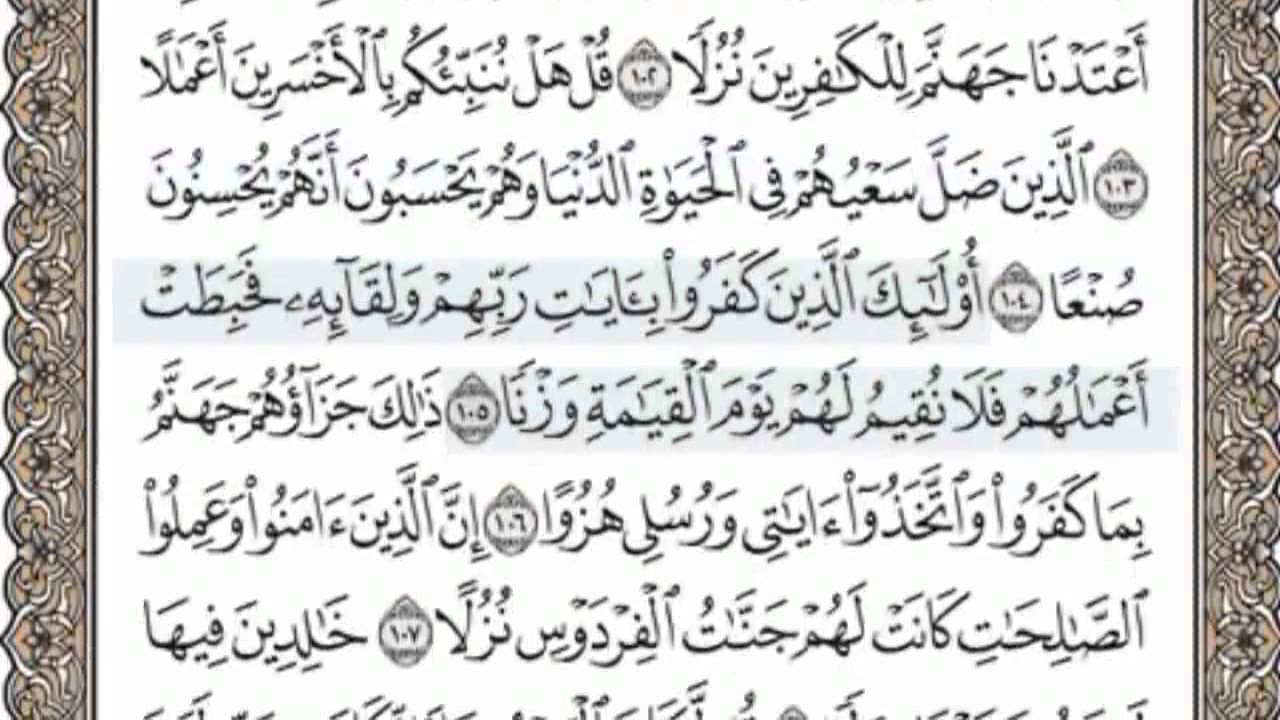 أَعْتَدْنَا جَهَنَّمَ لِلْكَٰفِرِينَ نُزُلًا ١٠٢ قُلْ هَلْ نُنَبِّئُكُم بِٱلْأَخْسَرِينَ أَعْمَٰلًا
١٠٣ ٱلَّذِينَ ضَلَّ سَعْيُهُمْ فِى ٱلْحَيَوٰةِ ٱلدُّنْيَا وَهُمْ يَحْسَبُونَ أَنَّهُمْ يُحْسِنُونَ
صُنْعًا ١٠٤ أُو۟لَٰٓئِكَ ٱلَّذِينَ كَفَرُوا۟ بِـَٔايَٰتِ رَبِّهِمْ وَلِقَآئِهِۦ فَحَبِطَتْ
أَعْمَٰلُهُمْ فَلَا نُقِيمُ لَهُمْ يَوْمَ ٱلْقِيَٰمَةِ وَزْنًا ١٠٥ ذَٰلِكَ جَزَآؤُهُمْ جَهَنَّمُ
بِمَا كَفَرُوا۟ وَٱتَّخَذُوٓا۟ ءَايَٰتِى وَرُسُلِى هُزُوًا ١٠٦ إِنَّ ٱلَّذِينَ ءَامَنُوا۟ وَعَمِلُوا۟
ٱلصَّٰلِحَٰتِ كَانَتْ لَهُمْ جَنَّٰتُ ٱلْفِرْدَوْسِ نُزُلًا ١٠٧ خَٰلِدِينَ فِيهَا